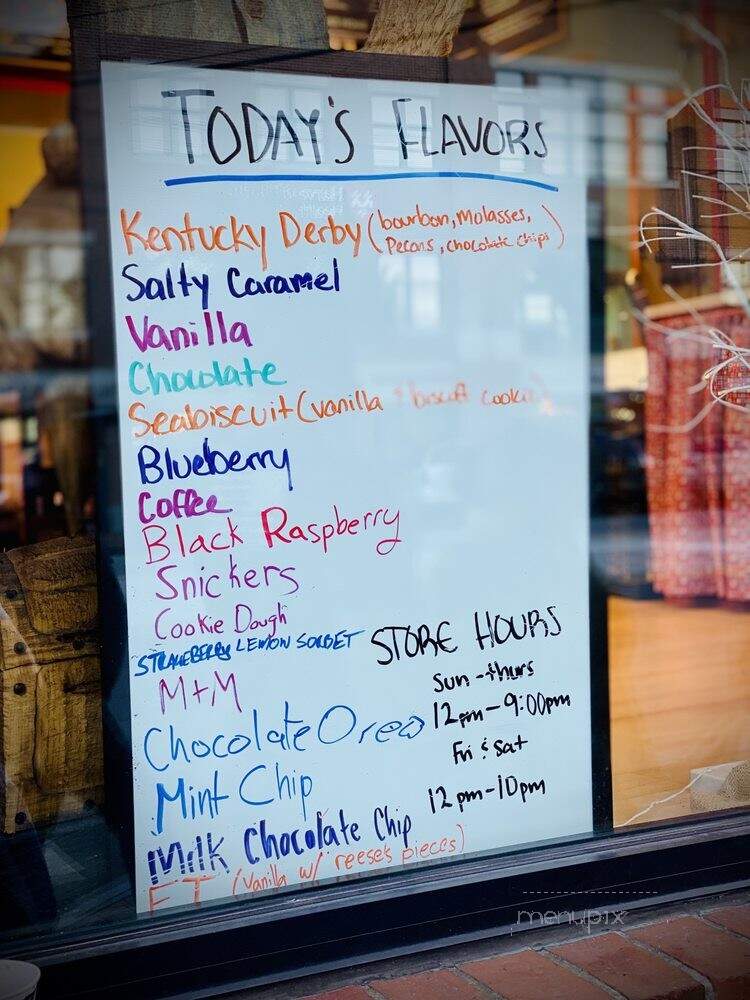 TODAY'S FLAVORS
Kentucky Derby (bourbon, Molasses,
Pecans, chocolate chips)
Salty Caramel
Vanilla
Chocolate
Seabiscuit (vanilla + biscoff cookie)
Blueberry
Coffee
Black Raspberry
Snickers
Cookie Dough
STRAWBERRY LEMON SORBET
M+M
Chocolate Oreo
Mint Chip
Milk Chocolate Chip
ET (vanilla w/ reese's pieces)
STORE HOURS
Sun-thurs
12pm-9:00pm
Fri & Sat
12pm-10pm
menupix